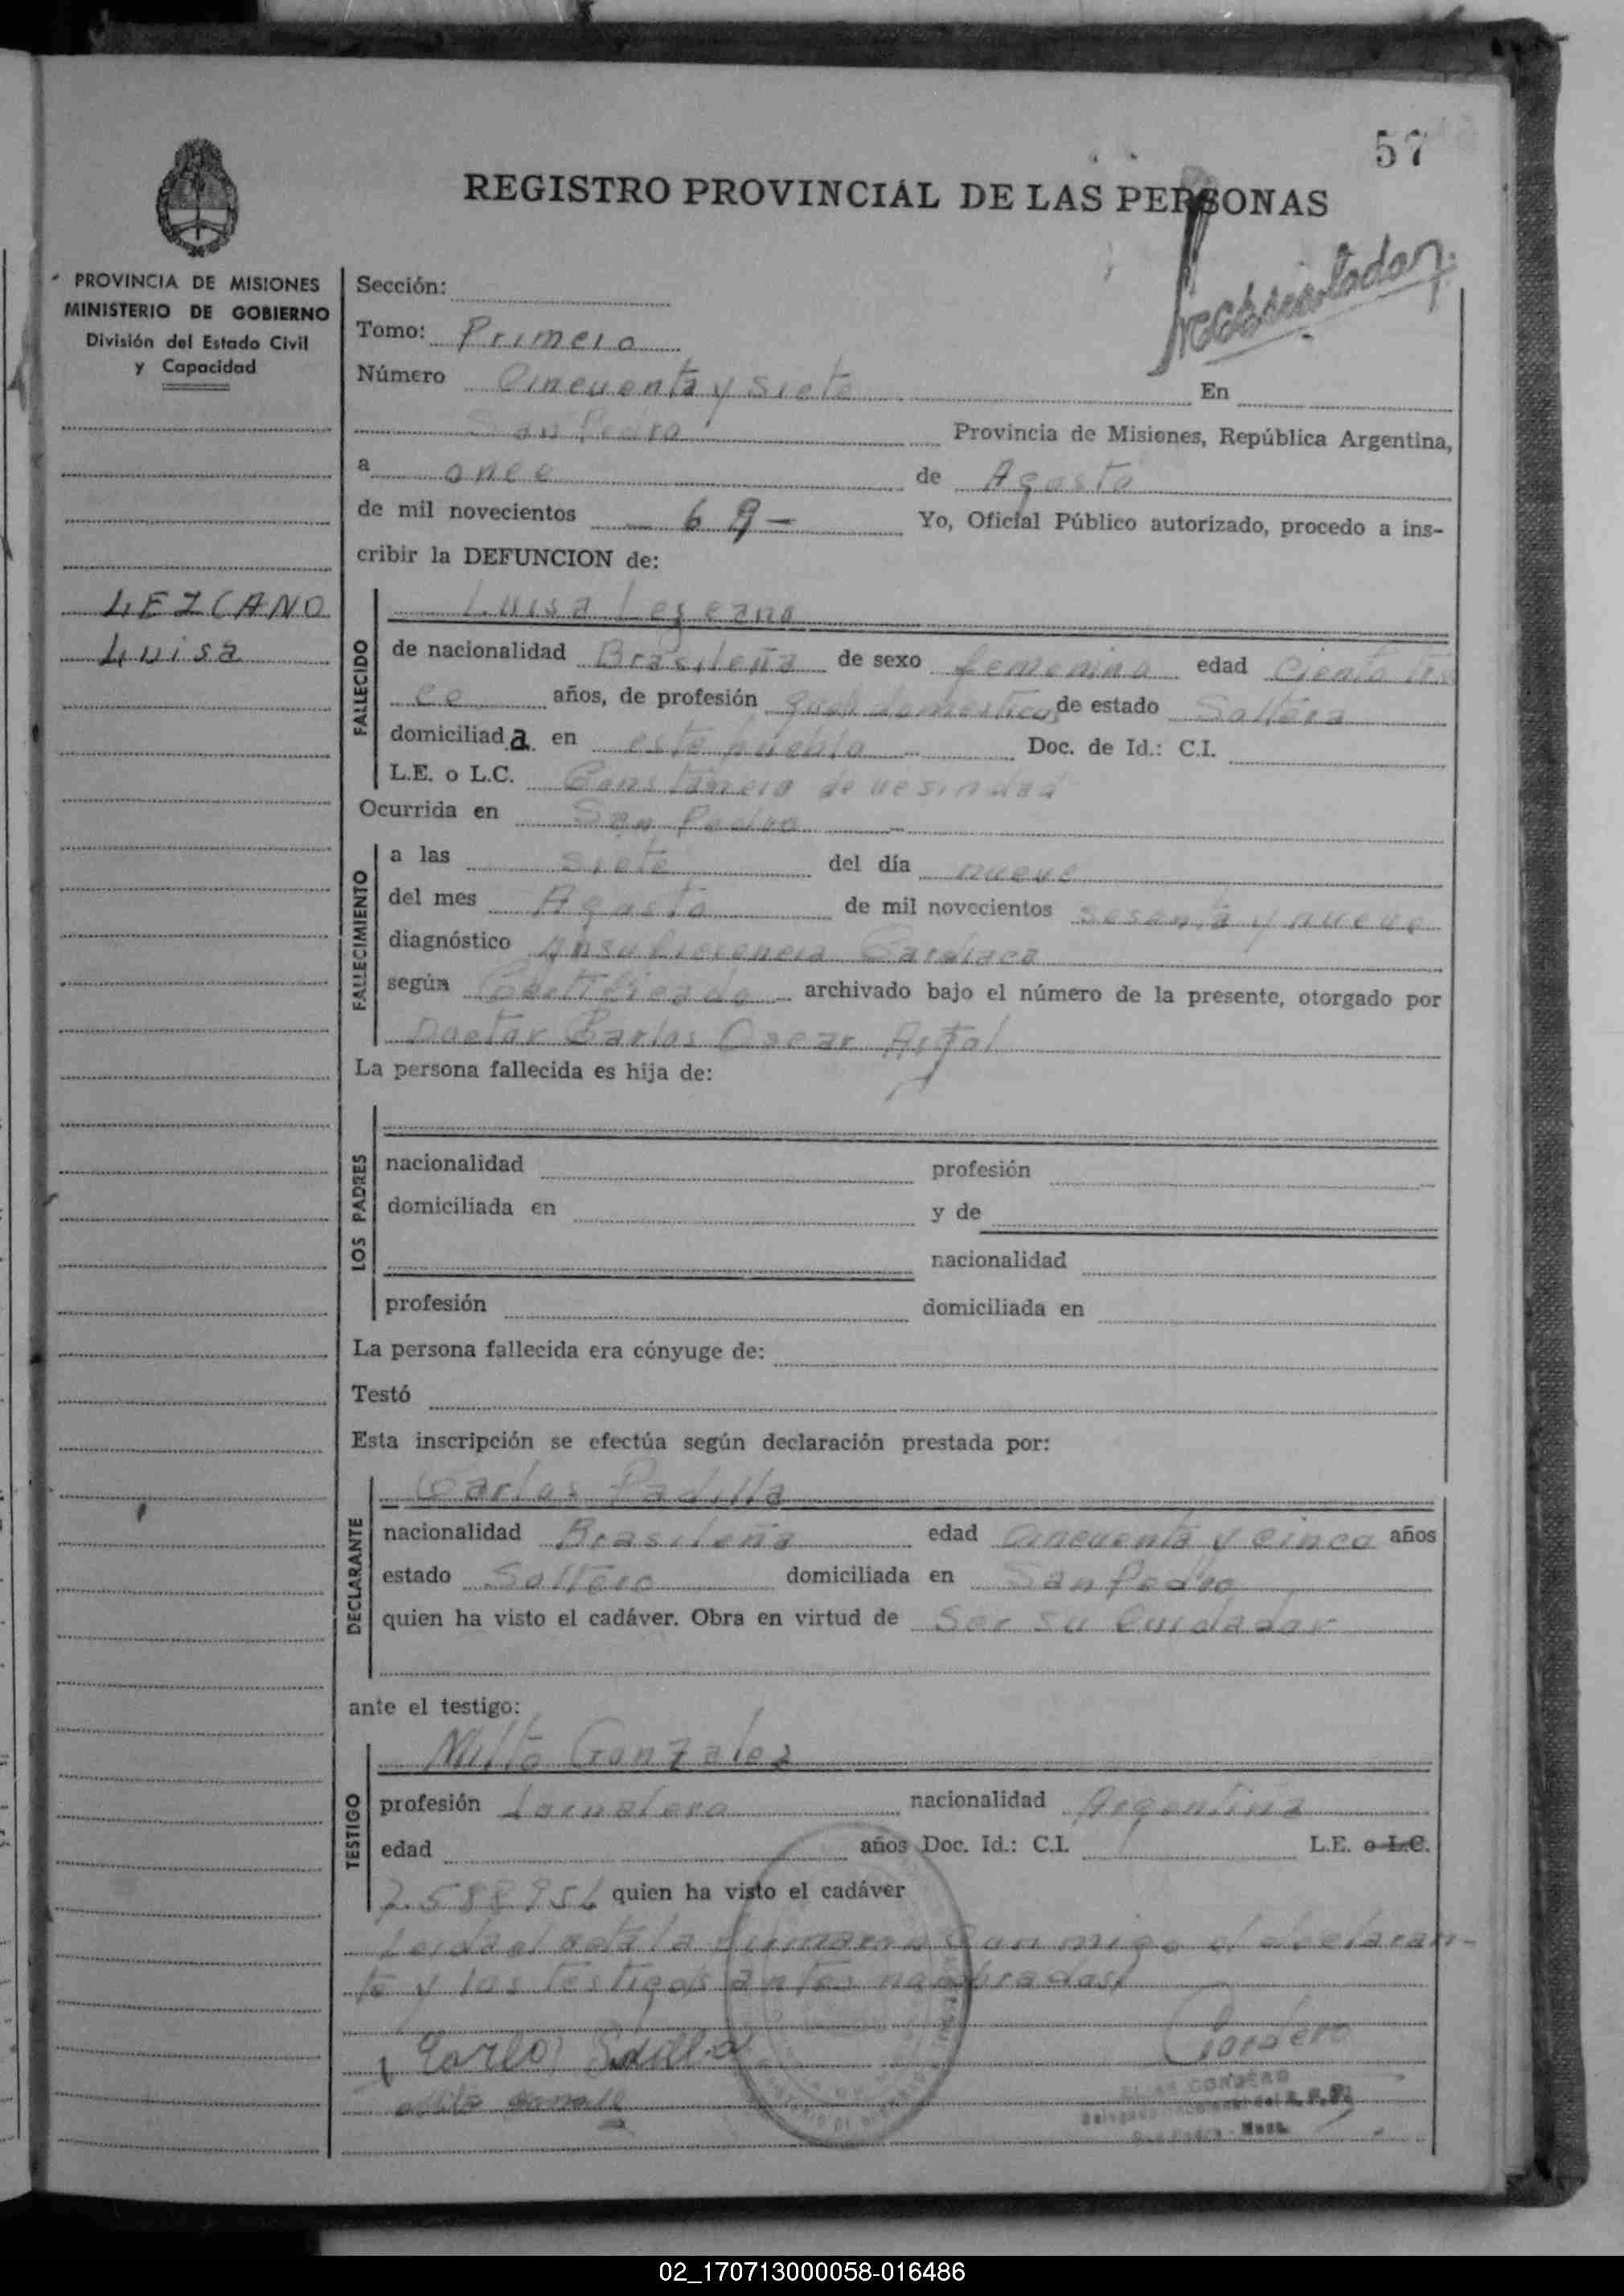 57
REGISTRO PROVINCIAL DE LAS PERSONAS
PROVINCIA DE MISIONES
MINISTERIO DE GOBIERNO
División del Estado Civil
y Capacidad
LEZCANO
Luisa
Sección:
Tomo: Primero
Número Cincuenta y siete En
San Pedro Provincia de Misiones, República Argentina,
a once de Agosto
de mil novecientos - 69 - Yo, Oficial Público autorizado, procedo a ins-
cribir la DEFUNCION de:
FALLECIDO
Luisa Lezcano
de nacionalidad Brasileña de sexo femenino edad Ciento tre
ce años, de profesión domesticos de estado Soltera
domiciliada en este pueblo Doc. de Id.: C.I.
L.E. o L.C. Constancia de vesindad
Ocurrida en San Pedro
FALLECIMIENTO
a las siete del día nueve
del mes Agosto de mil novecientos sesenta y nueve
diagnóstico Insuficiencia Cardiaca
según Certificado archivado bajo el número de la presente, otorgado por
Doctor Carlos Oscar
La persona fallecida es hija de:
LOS PADRES
nacionalidad profesión
domiciliada en y de
nacionalidad
profesión domiciliada en
La persona fallecida era cónyuge de:
Testó
Esta inscripción se efectúa según declaración prestada por:
DECLARANTE
Carlos Padilla
nacionalidad Brasileña edad Cincuenta y cinco años
estado Soltero domiciliada en San Pedro
quien ha visto el cadáver. Obra en virtud de Ser su Cuidador
ante el testigo:
TESTIGO
Milto Gonzalez
profesión Jornalero nacionalidad Argentina
edad años Doc. Id.: C.I. L.E. o L.C.
quien ha visto el cadáver
Leida el acta la firmaron Conmigo el declaran-
te y los testigos antes nombrados
Carlo Padilla
Cordero
CORDERO
02_170713000058-016486